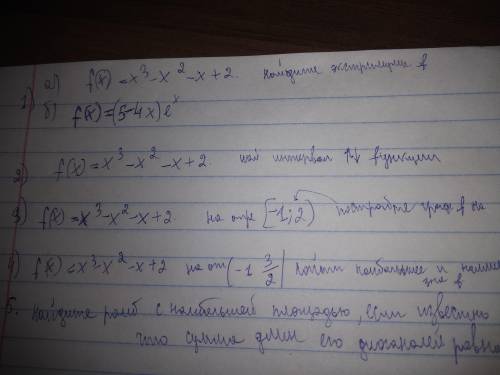 1) а) f(x) = x³-x²-x+2. найдите экстремумы ф
б) f(x)=(5-4x)eˣ
2) f(x)=x³-x²-x+2. интервал ↑↓ функции
3) f(x)=x³-x²-x+2 на [-1;2) постройте в на
4) f(x)=x³-x²-x+2 на от (-1 3/2| наибольшее и
5. Найдите ромб с наибольшей площадью, если известно
что сумма длин его диагоналей равна